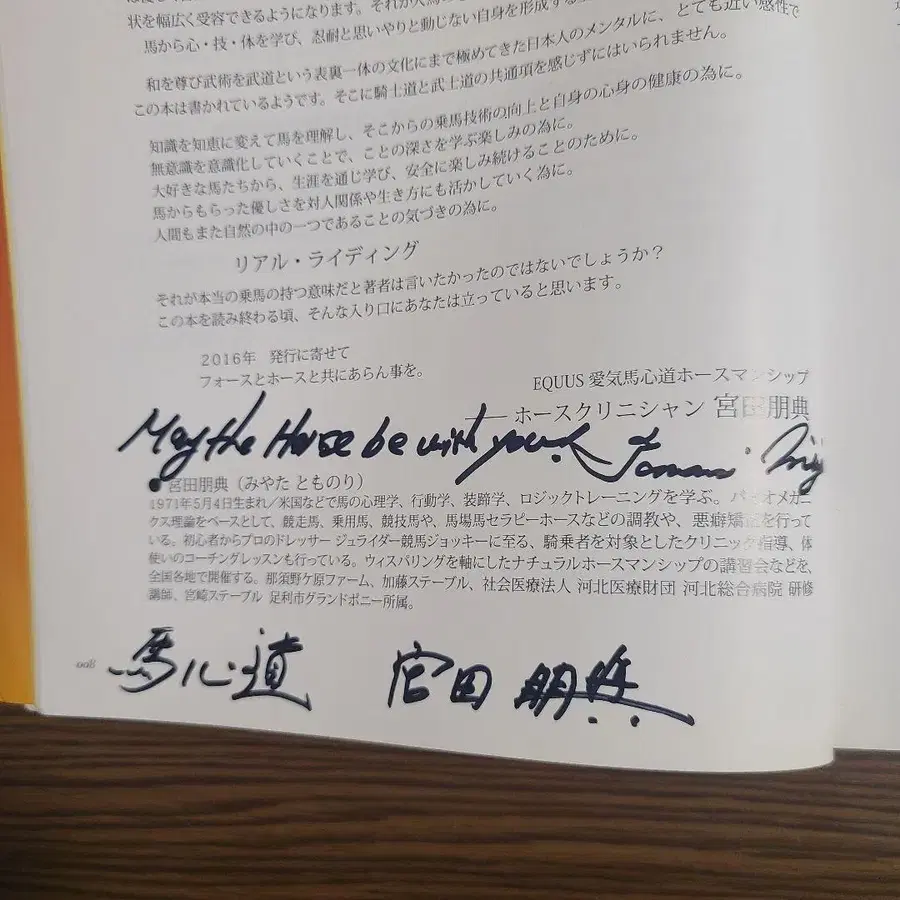 状を幅広く受容できるようになります。それが人馬の
馬から心・技・体を学び、忍耐と思いやりと動じない自身を形成する
和を尊び武術を武道という表裏一体の文化にまで極めてきた日本人のメンタルに、とても近い感性で
この本は書かれているようです。そこに騎士道と武士道の共通項を感じずにはいられません。
知識を知恵に変えて馬を理解し、そこからの乗馬技術の向上と自身の心身の健康の為に。
無意識を意識化していくことで、ことの深さを学ぶ楽しみの為に。
大好きな馬たちから、生涯を通じ学び、安全に楽しみ続けることのために。
馬からもらった優しさを対人関係や生き方にも活かしていく為に。
人間もまた自然の中の一つであることの気づきの為に。
リアル・ライディング
それが本当の乗馬の持つ意味だと著者は言いたかったのではないでしょうか？
この本を読み終わる頃、そんな入り口にあなたは立っていると思います。
2016年 発行に寄せて
フォースとホースと共にあらん事を。
EQUUS 愛気馬心道ホースマンシップ
ホースクリニシャン 宮田朋典
May the Horse be with you!
●宮田朋典（みやた とものり）
1971年5月4日生まれ／米国などで馬の心理学、行動学、装蹄学、ロジックトレーニングを学ぶ。バイオメカニ
クス理論をベースとして、競走馬、乗用馬、競技馬や、馬場馬セラピーホースなどの調教や、悪癖矯正を行って
いる。初心者からプロのドレッサー ジュライダー競馬ジョッキーに至る、騎乗者を対象としたクリニック指導、体
使いのコーチングレッスンも行っている。ウィスパリングを軸にしたナチュラルホースマンシップの講習会などを、
全国各地で開催する。那須野ケ原ファーム、加藤ステーブル、社会医療法人 河北医療財団 河北総合病院 研修
講師、宮崎ステーブル 足利市グランドポニー所属。
008
馬心道 宮田 朋典